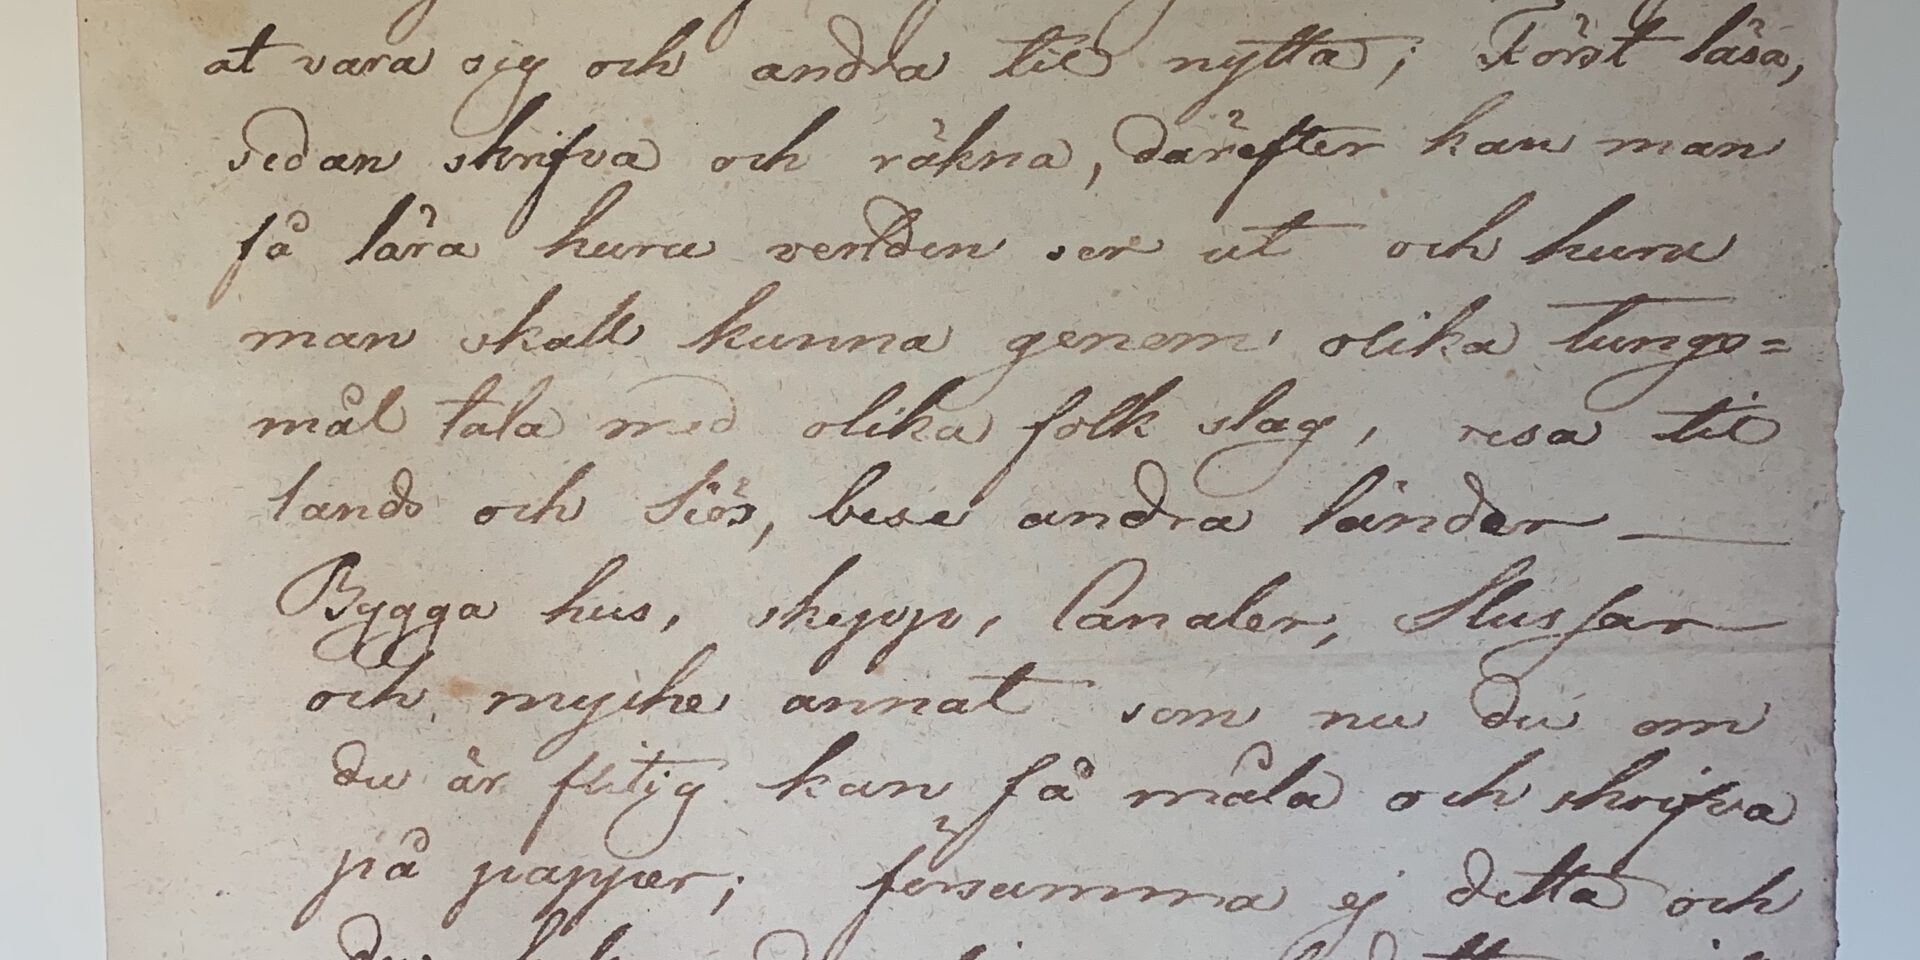 at vara sig och andra til nytta; Först läsa,
sedan skrifva och räkna, därefter kan man
få lära huru verlden ser ut och huru
man skall kunna genom olika tungo=
mål tala med olika folk slag, resa til
lands och Siös, bese andra länder —
Bygga hus, skepp, Canaler, Slussar
och mycke annat som nu du om
du är flitig kan få måla och skrifva
på papper; försumma ej detta och